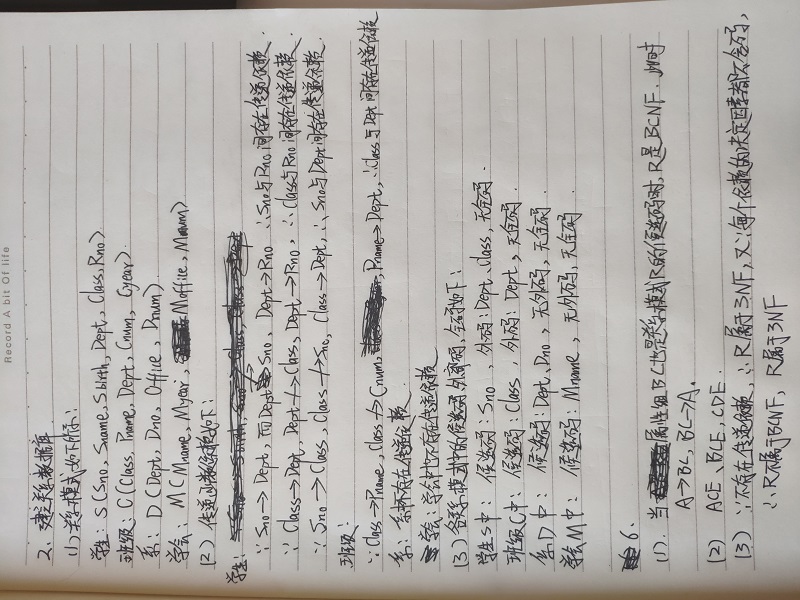 Record A bit Of life
2、建立关系数据库
(1)关系模式如下所示:
学生:S(Sno, Sname, Sbirth, Dept, Class, Rno)
班级:C(Class, Pname, Dept, Cnum, Cyear)
系:D(Dept, Dno, Office, Dnum)
学会:M(Mname, Myear, Maffile, Mnum)
(2)传递函数依赖如下:
学生:
∵Sno→Dept, 而Dept↛Sno, Dept→Rno ∴Sno与Rno间存在传递依赖.
∵Class→Dept, Dept↛Class, Dept→Rno, ∴Class与Rno间存在传递依赖.
∵Sno→Class, Class↛Sno, Class→Dept, ∴Sno与Dept间存在传递依赖.
班级:
∵Class→Pname, Class↛Cnum, Pname→Dept, ∴Class与Dept间存在传递依赖
系:系中不存在传递依赖.
学会:学会中也不存在传递依赖
(3)各关系模式中的候选码,外部码,全码如下:
学生S中:候选码:Sno,外码:Dept、Class,无全码.
班级C中:候选码:Class,外码:Dept,无全码.
系D中:候选码:Dept、Dno,无外码,无全码.
学会M中:候选码:Mname,无外码,无全码.
6.
(1).当属性组BC也是关系模式R的候选码时,R是BCNF.此时
A→BC, BC→A.
(2) ACE、BCE、CDE.
(3)∵不存在传递依赖,∴R属于3NF,又∵每个依赖的决定因素都不含码,
∴R不属于BCNF, R属于3NF